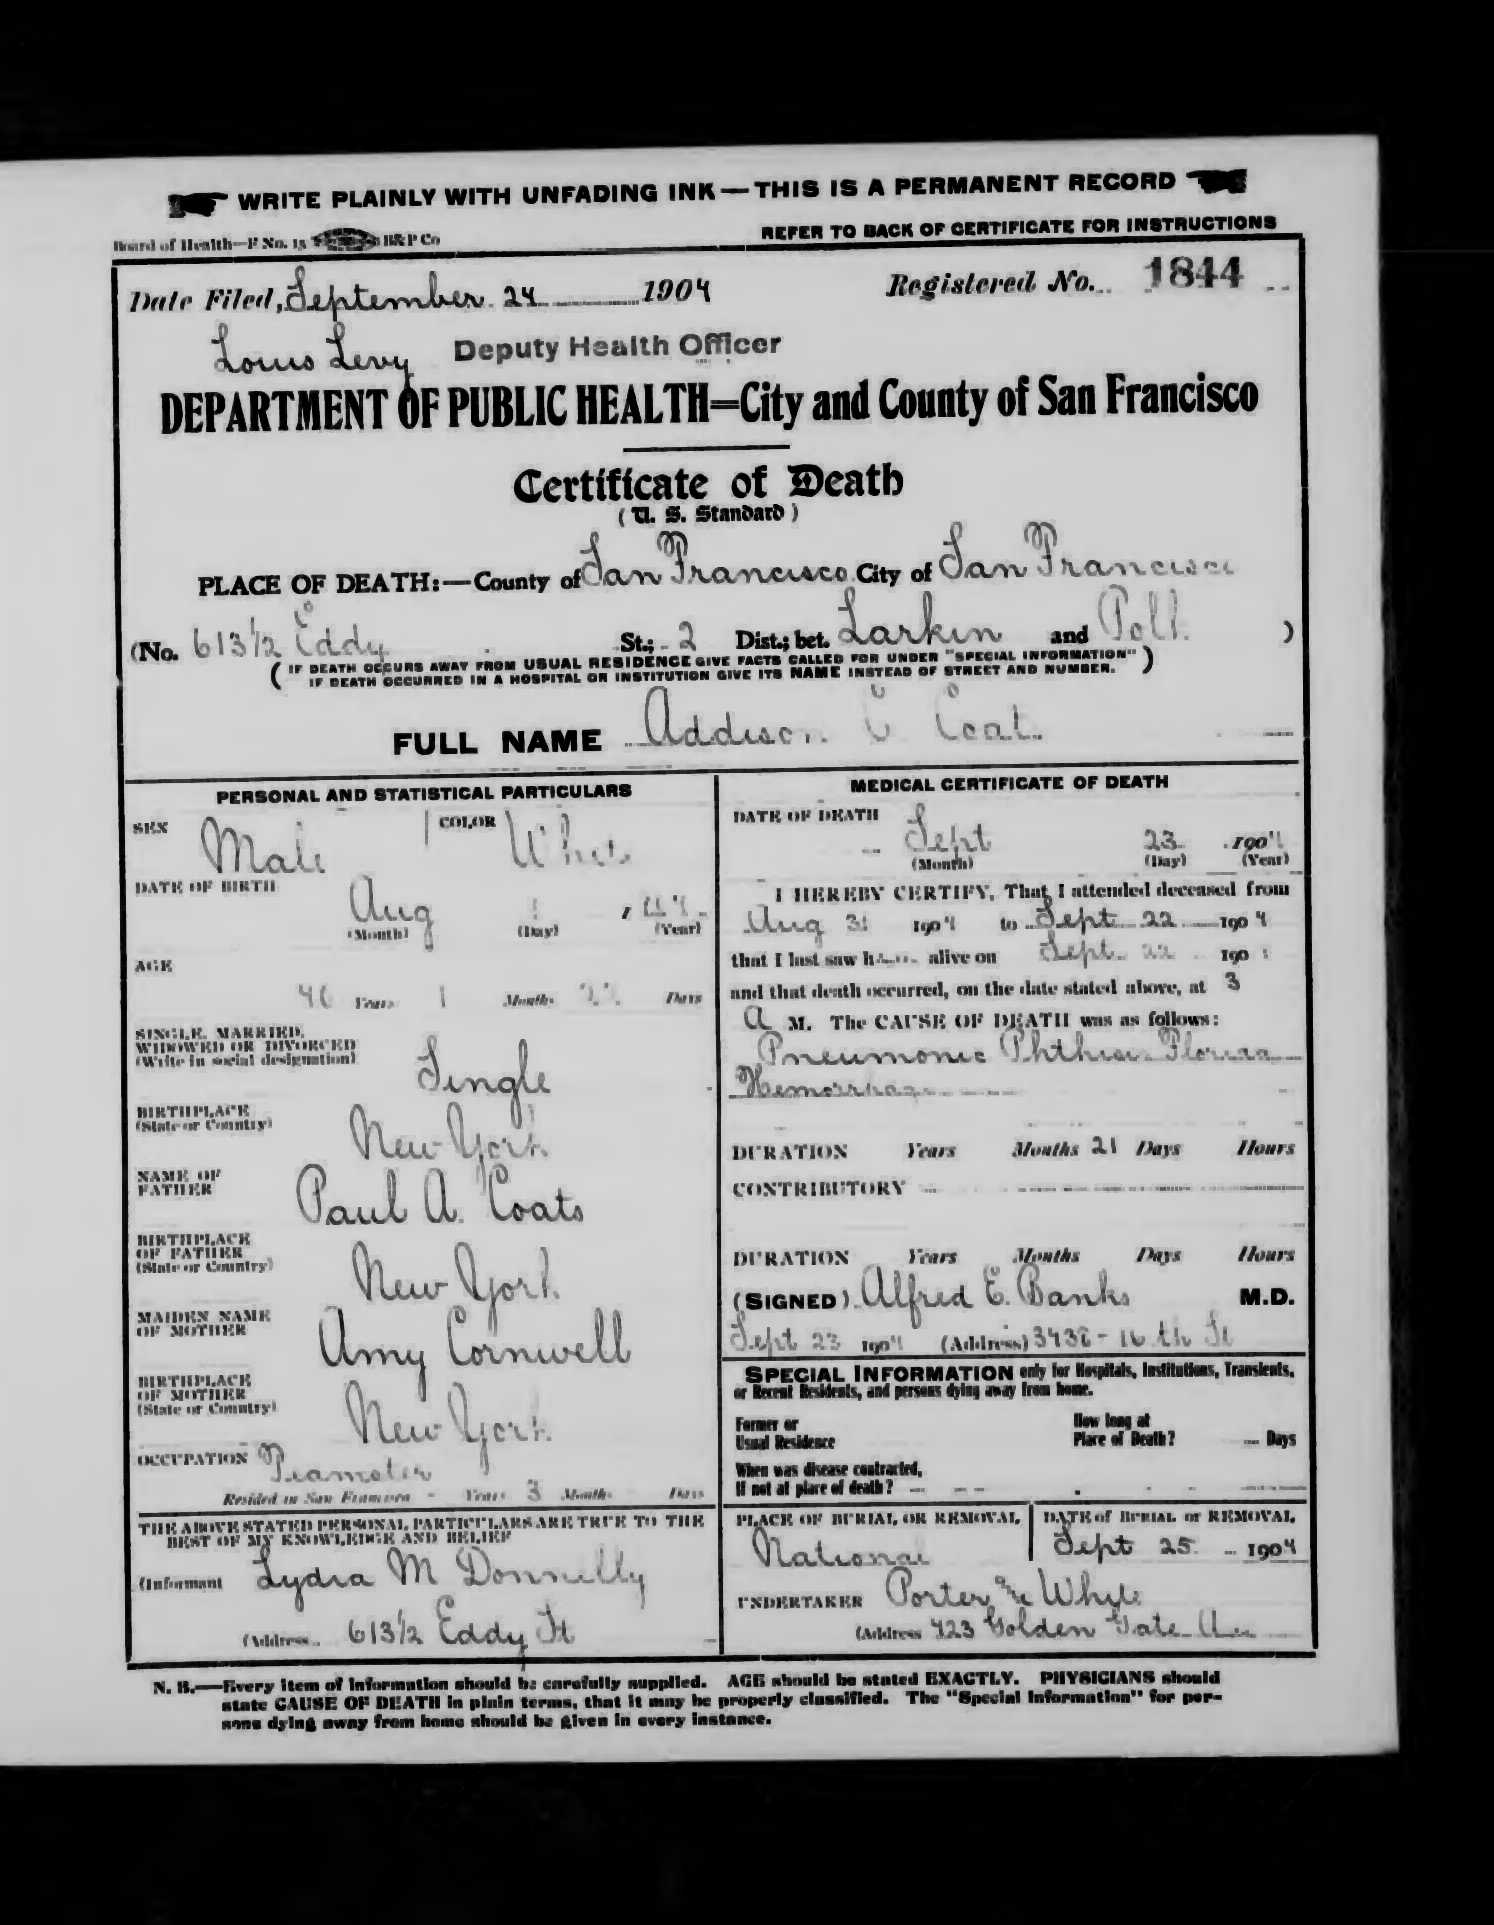 WRITE PLAINLY WITH UNFADING INK—THIS IS A PERMANENT RECORD
Board of Health—F No. 15 H&P Co
REFER TO BACK OF CERTIFICATE FOR INSTRUCTIONS
Date Filed, September 24 1904
Registered No. 1844
Louis Levy Deputy Health Officer
DEPARTMENT OF PUBLIC HEALTH=City and County of San Francisco
Certificate of Death
(U. S. Standard)
PLACE OF DEATH:—County of San Francisco City of San Francisco
(No. 613 1/2 Eddy St.; 2 Dist.; bet. Larkin and Polk )
(IF DEATH OCCURS AWAY FROM USUAL RESIDENCE GIVE FACTS CALLED FOR UNDER "SPECIAL INFORMATION"
IF DEATH OCCURRED IN A HOSPITAL OR INSTITUTION GIVE ITS NAME INSTEAD OF STREET AND NUMBER.)
FULL NAME Addison Coats
PERSONAL AND STATISTICAL PARTICULARS
SEX Male COLOR White
DATE OF BIRTH
Aug 1
(Month) (Day) (Year)
AGE
Years 1 Months 22 Days
SINGLE, MARRIED,
WIDOWED OR DIVORCED
(Write in social designation)
Single
BIRTHPLACE
(State or Country)
New York
NAME OF
FATHER
Paul A. Coats
BIRTHPLACE
OF FATHER
(State or Country)
New York
MAIDEN NAME
OF MOTHER
Amy Cornwell
BIRTHPLACE
OF MOTHER
(State or Country)
New York
OCCUPATION Teamster
Resided in San Francisco - Years 3 Months Days
THE ABOVE STATED PERSONAL PARTICULARS ARE TRUE TO THE
BEST OF MY KNOWLEDGE AND BELIEF
(Informant Lydia M Donnelly
(Address 613 1/2 Eddy St
MEDICAL CERTIFICATE OF DEATH
DATE OF DEATH
Sept 23 1904
(Month) (Day) (Year)
I HEREBY CERTIFY, That I attended deceased from
Aug 31 1904 to Sept 22 1904
that I last saw him alive on Sept 22 190
and that death occurred, on the date stated above, at 3
A M. The CAUSE OF DEATH was as follows:
Pneumonic Phthisis
Hemorrhage
DURATION Years Months 21 Days Hours
CONTRIBUTORY
DURATION Years Months Days Hours
(SIGNED) Alfred E. Banks M.D.
Sept 23 1904 (Address) 3438 - 16 th St
SPECIAL INFORMATION only for Hospitals, Institutions, Transients,
or Recent Residents, and persons dying away from home.
Former or
Usual Residence
How long at
Place of Death? Days
When was disease contracted,
If not at place of death?
PLACE OF BURIAL OR REMOVAL
National
DATE of BURIAL or REMOVAL
Sept 25 1904
UNDERTAKER Porter & White
(Address 423 Golden Gate Ave
N. B.—Every item of information should be carefully supplied. AGE should be stated EXACTLY. PHYSICIANS should
state CAUSE OF DEATH in plain terms, that it may be properly classified. The "Special Information" for per-
sons dying away from home should be given in every instance.